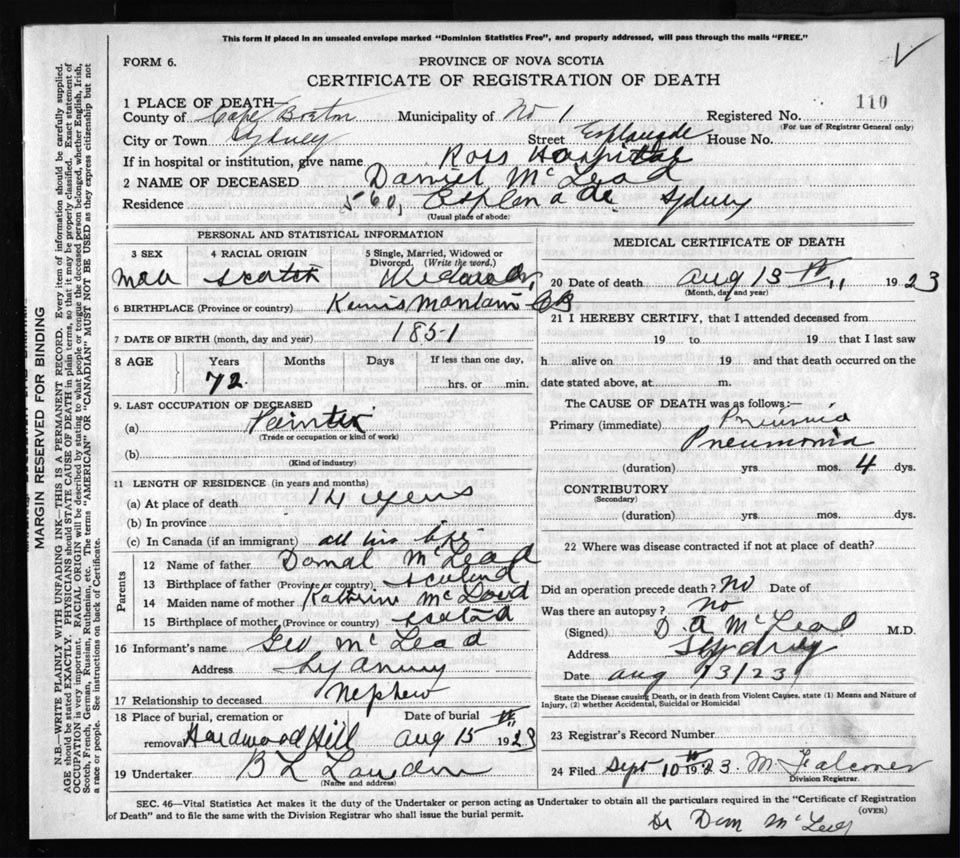 This form if placed in an unsealed envelope marked "Dominion Statistics Free", and properly addressed, will pass through the mails "FREE."
FORM 6.
PROVINCE OF NOVA SCOTIA
CERTIFICATE OF REGISTRATION OF DEATH
110
1 PLACE OF DEATH—
County of Cape Breton Municipality of No 1 Registered No.
(For use of Registrar General only)
City or Town Sydney Street Esplanade House No.
If in hospital or institution, give name Ross Hospital
2 NAME OF DECEASED Daniel McLead
Residence 560, Esplenade Sydney
(Usual place of abode)
PERSONAL AND STATISTICAL INFORMATION
3 SEX 4 RACIAL ORIGIN 5 Single, Married, Widowed or Divorced. (Write the word.)
Scotch
6 BIRTHPLACE (Province or country) CB
7 DATE OF BIRTH (month, day and year) 1851
8 AGE Years Months Days If less than one day,
72. hrs. or min.
9. LAST OCCUPATION OF DECEASED
(a) Painter
(Trade or occupation or kind of work)
(b)
(Kind of industry)
11 LENGTH OF RESIDENCE (in years and months)
(a) At place of death 14 years
(b) In province
(c) In Canada (if an immigrant) all his life
Parents
12 Name of father McLead
13 Birthplace of father (Province or country)
14 Maiden name of mother
15 Birthplace of mother (Province or country)
16 Informant's name Geo McLead
Address
17 Relationship to deceased Nephew
18 Place of burial, cremation or removal Hardwood Hill Date of burial Aug 15 th 1923
19 Undertaker B L
(Name and address)
MEDICAL CERTIFICATE OF DEATH
20 Date of death aug 13 th 1923
(Month, day and year)
21 I HEREBY CERTIFY, that I attended deceased from
19 to 19 that I last saw
h alive on 19 and that death occurred on the
date stated above, at m.
The CAUSE OF DEATH was as follows:—
Primary (immediate)
Pneumonia
(duration) yrs. mos. 4 dys.
CONTRIBUTORY
(Secondary)
(duration) yrs. mos. dys.
22 Where was disease contracted if not at place of death?
Did an operation precede death? No Date of
Was there an autopsy? no
(Signed) D A McLeod M.D.
Address Sydney
Date aug 13/23
State the Disease causing Death, or in death from Violent Causes, state (1) Means and Nature of
Injury, (2) whether Accidental, Suicidal or Homicidal
23 Registrar's Record Number
24 Filed Sept 10 th 1923. M Falconer
Division Registrar.
SEC. 46—Vital Statistics Act makes it the duty of the Undertaker or person acting as Undertaker to obtain all the particulars required in the "Certificate of Registration
of Death" and to file the same with the Division Registrar who shall issue the burial permit.
(OVER)
MARGIN RESERVED FOR BINDING
N.B.—WRITE PLAINLY WITH UNFADING INK—THIS IS A PERMANENT RECORD. Every item of information should be carefully supplied.
AGE should be stated EXACTLY. PHYSICIANS should STATE CAUSE OF DEATH in plain terms, so that it may be properly classified. Exact statement of
OCCUPATION is very important. RACIAL ORIGIN will be described by stating to what people or tongue the deceased person belonged, whether English, Irish,
Scotch, French, German, Russian, Ruthenian, etc. The terms "AMERICAN" OR "CANADIAN" MUST NOT BE USED as they express citizenship but not
a race or people. See instructions on back of Certificate.